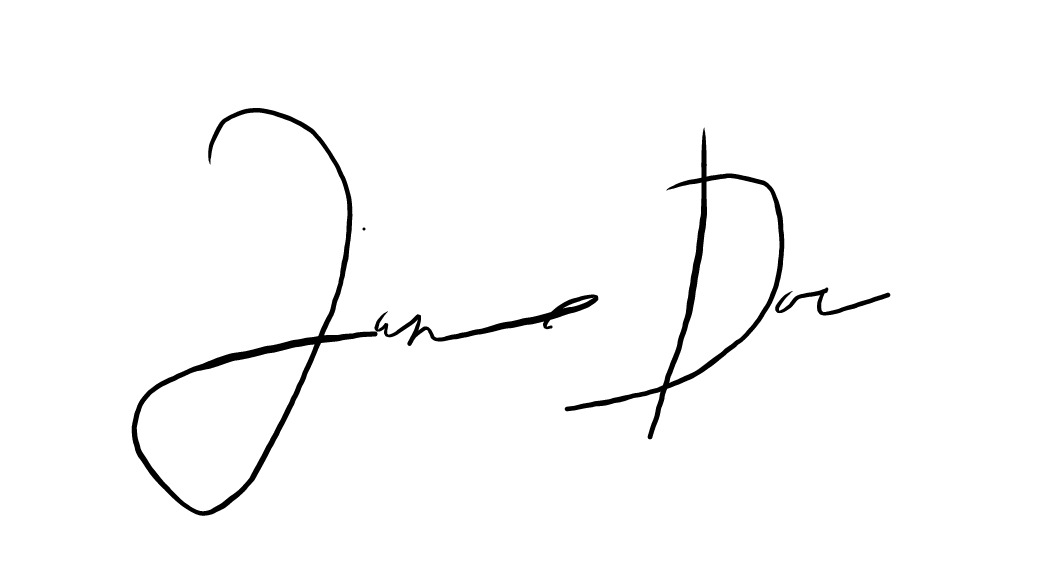 Jane Doe